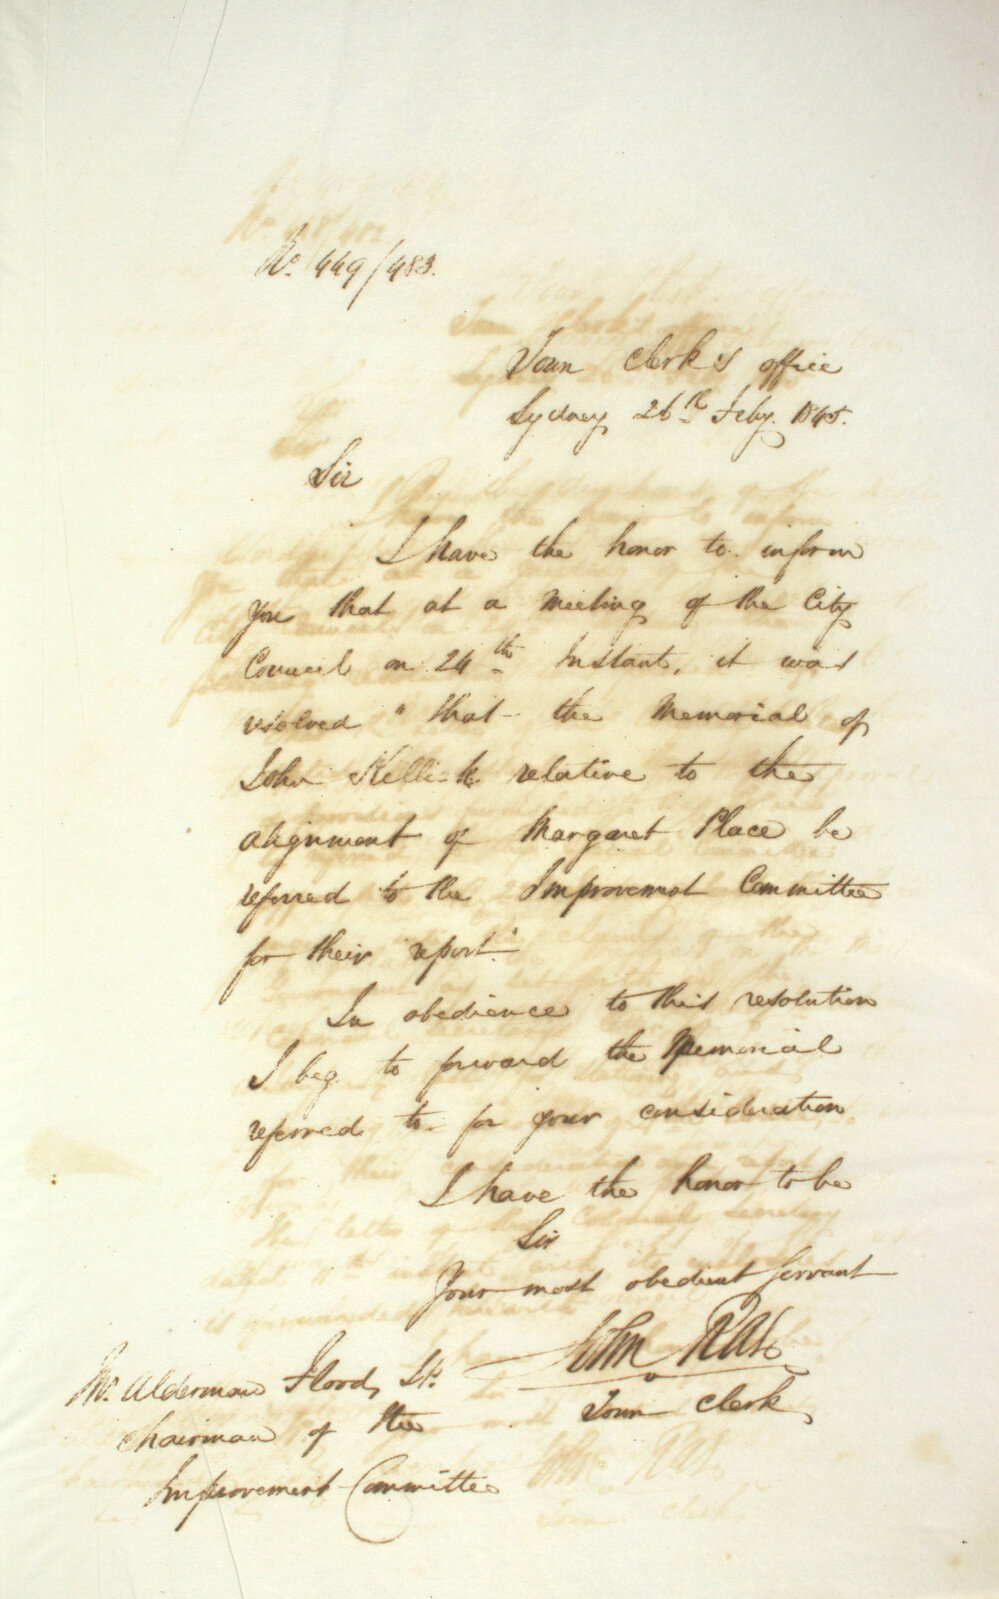 No. 449/483.
Town Clerk's office
Sydney 26th Feby. 1845.
Sir
I have the honor to inform
you that at a meeting of the City
Council on 24th Instant, it was
resolved "that the Memorial of
John Kellick relative to the
alignment of Margaret Place be
referred to the Improvemet Committee
for their report."
In obedience to this resolution
I beg to forward the Memorial
referred to for your consideration
I have the honor to be
Sir
Your most obedient servant
John Rae
Town Clerk
Mr. Alderman Flood,
Chairman of the
Improvement Committee